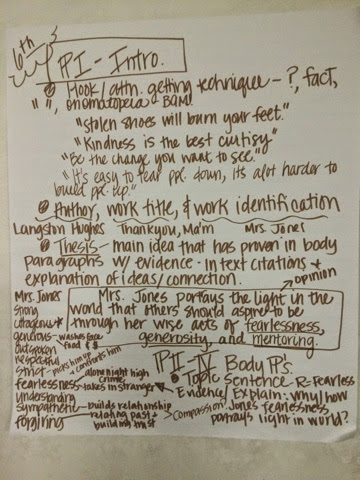 6th
¶I - Intro.
Hook/attn. getting technique - ?, fact,
" ", onomatopeia BAM!
"Stolen shoes will burn your feet."
"Kindness is the best curtisy"
"Be the change you want to see."
"It's easy to tear ppl. down, its alot harder to
build ppl. up."
Author, work title, & work identification
Langston Hughes Thankyou, Ma'm Mrs. Jones
Thesis - main idea that has proven in body
paragraphs w/ evidence - in text citations &
explanation of ideas/connection.
opinion
Mrs. Jones portays the light in the
world that others should aspire to be
through her wise acts of fearlessness,
generosity, and mentoring.
Mrs. Jones
strong
generous - washes face
food $
outspoken
respectful
strict - picks him up & confronts him
fearlessness - alone night high
crime
takes in stranger
understanding
sympathetic - builds relationship
relating past &
building trust
Compassion
forgiving
¶II-IV Body ¶'s.
Topic Sentence - R- Fearless
Evidence/Explain: Why/how
Jones fearlessness
portrays light in world?